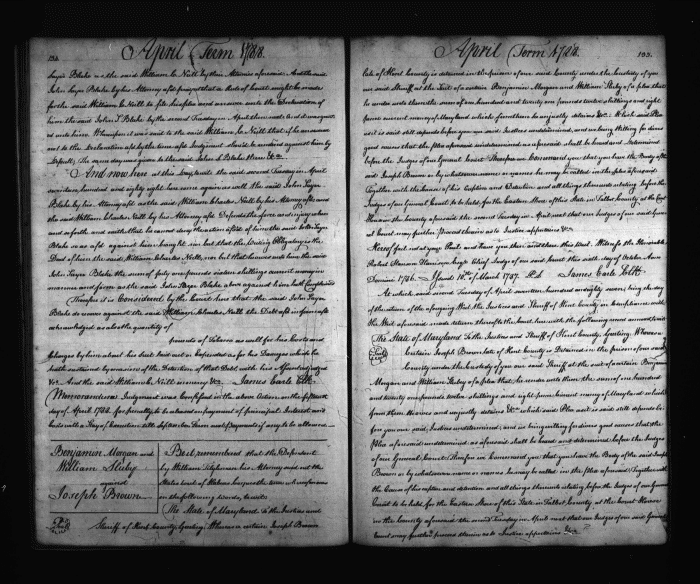 132.
April Term 1788.
Blake as the said William C. Neill by their Attornies aforesaid. And the said
John Sayer Blake by his Attorney afsd prays that a Rule of Court might be made
for the said William C. Neill to file his plea and answer unto the Declaration of
him the said John S. Blake by the second Tuesday in April then next to Enter
unto him. Whereupon it was said to the said William C. Neill that if he answer
not to the Declaration afsd by the time afsd Judgment should be rendered against him by
Default; The same day was given to the said John S. Blake there &c.
And now here at this Day, to wit the said second Tuesday in April
seventeen hundred and eighty eight here came again as well the said John Sayer
Blake by his Attorney afsd as the said William Charles Neill by his Attorney afsd; and
the said William Charles Neill by his Attorney afsd Defends the force and injury when
and so forth and saith that he cannot deny the action afsd of him the said John Sayer
Blake as afsd against him brought, nor but that the Writing Obligatory is the
Deed of him the said William Charles Neill, nor but that he owes unto him the said
John Sayer Blake the sum of forty one pounds sixteen shillings current money in
manner and form as the said John Sayer Blake above against him hath Complained
Therefore it is Considered by the Court here that the said John Sayer
Blake do recover against the said William Charles Neill the Debt afsd in form afsd
acknowledged as also the quantity of
pounds of Tobacco as well for his Costs and
Charges by him about his Suit laid out or expended as for his Damages which he
hath sustained by reason of the Detention of that Debt with his Assent adjudged
&c. And the said William C. Neill in mercy &c. James Earle Clk.
Memorandum Judgment was Confessed in the above Action on the fifteenth
day of April 1788. for penalty to be released on payment of principal Interest and
Costs with a Stay of Execution till
Benjamin Morgan and
William Sluby
against
Joseph Brown
Be it remembered that the Defendant
by William Tilghman his Attorney sued out the
States writ of Habeas Corpus
in the following words, to wit.
The State of Maryland to the Justices and
Sheriff of Kent County, Greeting. Whereas a certain Joseph Brown
133.
April Term 1788.
late of Kent County is detained in the prison of our said County under the Custody of you
our said Sheriff at the Suit of a certain Benjamin Morgan and William Sluby of a plea that
he render unto them the sum of one hundred and twenty one pounds twelve shillings and eight
pence current money of Maryland which from them he unjustly detains &c. Which said Plea
as it is said still depends before you our said Justices undetermined, and we being Willing for divers
good causes that the plea aforesaid undetermined as aforesaid shall be heard and determined
before the Judges of our General Court Therefore we Command you that you have the Body of the
said Joseph Brown or by whatsoever name or names he may be called in the plea aforesaid
Together with the Causes of his Caption and Detention and all things thereunto relating before the
Judges of our General Court to be held for the Eastern Shore of this State in Talbot County at the Court
House in the County aforesaid the second Tuesday in April next that our Judges of our said General
Court may further proceed therein as to Justice appertains &c.
Hereof fail not at your Peril and have you then and there this Writ. Witness the Honorable
Robert Hanson Harrison, Esqr Chief Judge of our said Court this sixth day of October Anno
Domini 1786. Issued 18th of March 1787. James Earle Clk
At which said second Tuesday of April seventeen hundred and eighty seven, being the day
of the return of the aforegoing Writ the Justices and Sheriff of Kent County in Compliance with
the Writ aforesaid made return thereof to the Court here with the following record annexed to wit
The State of Maryland To the Justices and Sheriff of Kent County, Greeting Whereas
a Certain Joseph Brown late of Kent County is Detained in the prison of our said
County under the Custody of you our said Sheriff at the suit of a certain Benjamin
Morgan and William Sluby of a plea that he render unto them the sum of one hundred
and twenty one pounds twelve shillings and eight pence current money of Maryland which
from them He owes and unjustly detains &c. which said Plea as it is said still depends be-
fore you our said Justices undetermined, and we being willing for divers good causes that the
Plea aforesaid undetermined as aforesaid shall be heard and determined before the Judges
of our General Court. Therefore we Command you that you have the Body of the said Joseph
Brown or by whatsoever name or names he may be called in the Plea aforesaid Together with
the Causes of his caption and detention and all things thereunto relating before the Judges of our General
Court to be held for the Eastern Shore of this State in Talbot County at the Court House
in the County aforesaid the second Tuesday in April next that our Judges of our said General
Court may further proceed therein as to Justice appertains &c.